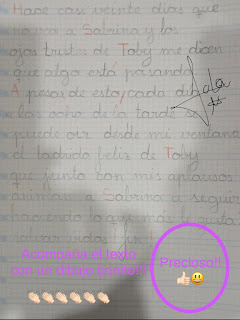 Hace casi veinte días que
no veo a Sabrina y los
ojos tristes de Toby me dicen
que algo está pasando.
A pesar de esto, cada día a
las ocho de la tarde se
puede oír desde mi ventana
el ladrido feliz de Toby
que junto con mis aplausos
animan a Sabrina a seguir
haciendo lo que más le gusta
curar vidas
Acompaña el texto
con un dibujo bonito!!!
Precioso!!